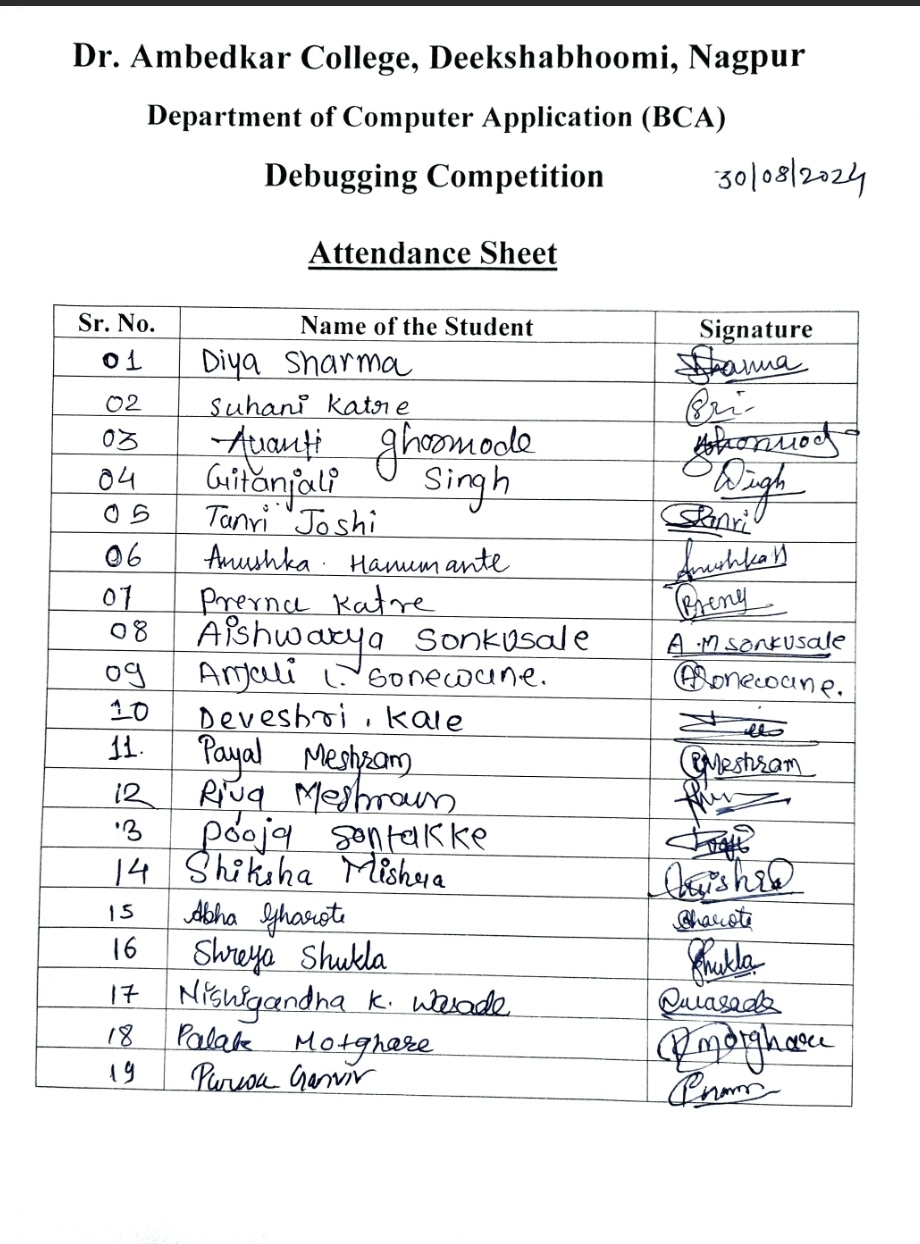 Dr. Ambedkar College, Deekshabhoomi, Nagpur
Department of Computer Application (BCA)
Debugging Competition 30/08/2024
Attendance Sheet
Sr. No. Name of the Student Signature
01 Diya Sharma Sharma
02 Suhani Katre
03 Avanti ghoomode
04 Gitanjali Singh Singh
05 Tanvi Joshi Tanvi
06 Anushka . Hanumante AnushkaH
07 Prerna Katre
08 Aishwarya Sonkusale A.M sonkusale
09 Anjali L. Sonewane. ASonewane.
10 Deveshri . Kale
11. Payal Meshram PMeshram
12 Riya Meshram
13 Pooja Sontakke
14 Shiksha Mishra Mishra
15 Abha Gharote Gharote
16 Shreya Shukla Shukla
17 Nishigandha K. Wasade
18 Palak Motghare PMotghare
19 Purwa Ganvir